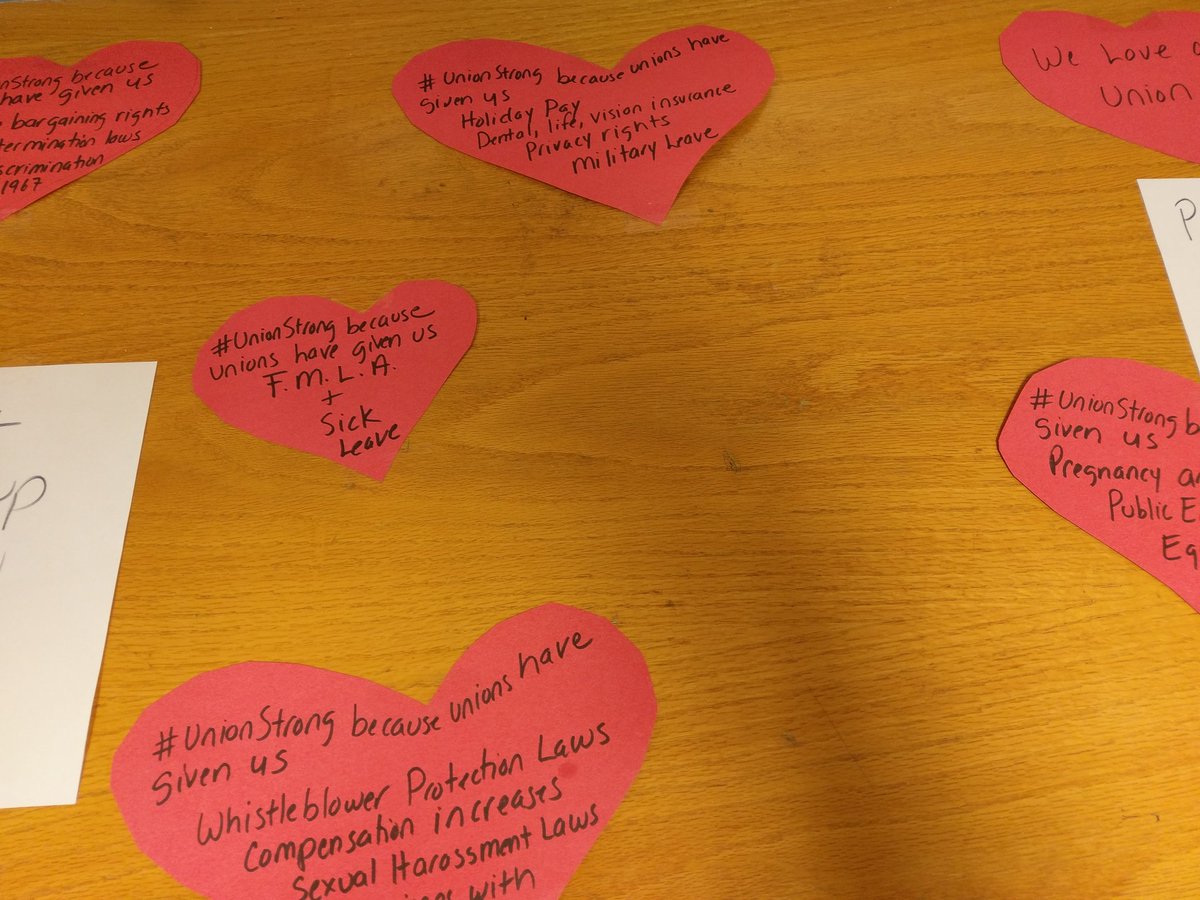 nStrong because
have given us
bargaining rights
termination laws
scrimination
1967
# UnionStrong because unions have
given us
Holiday Pay
Dental, life, vision insurance
Privacy rights
Military Leave
We Love
Union
P
#UnionStrong because
unions have given us
F.M.L.A.
+
Sick
Leave
#UnionStrong b
given us
Pregnancy a
Public E
Eq
#UnionStrong because unions have
given us
Whistleblower Protection Laws
Compensation increases
Sexual Harossment Laws
with